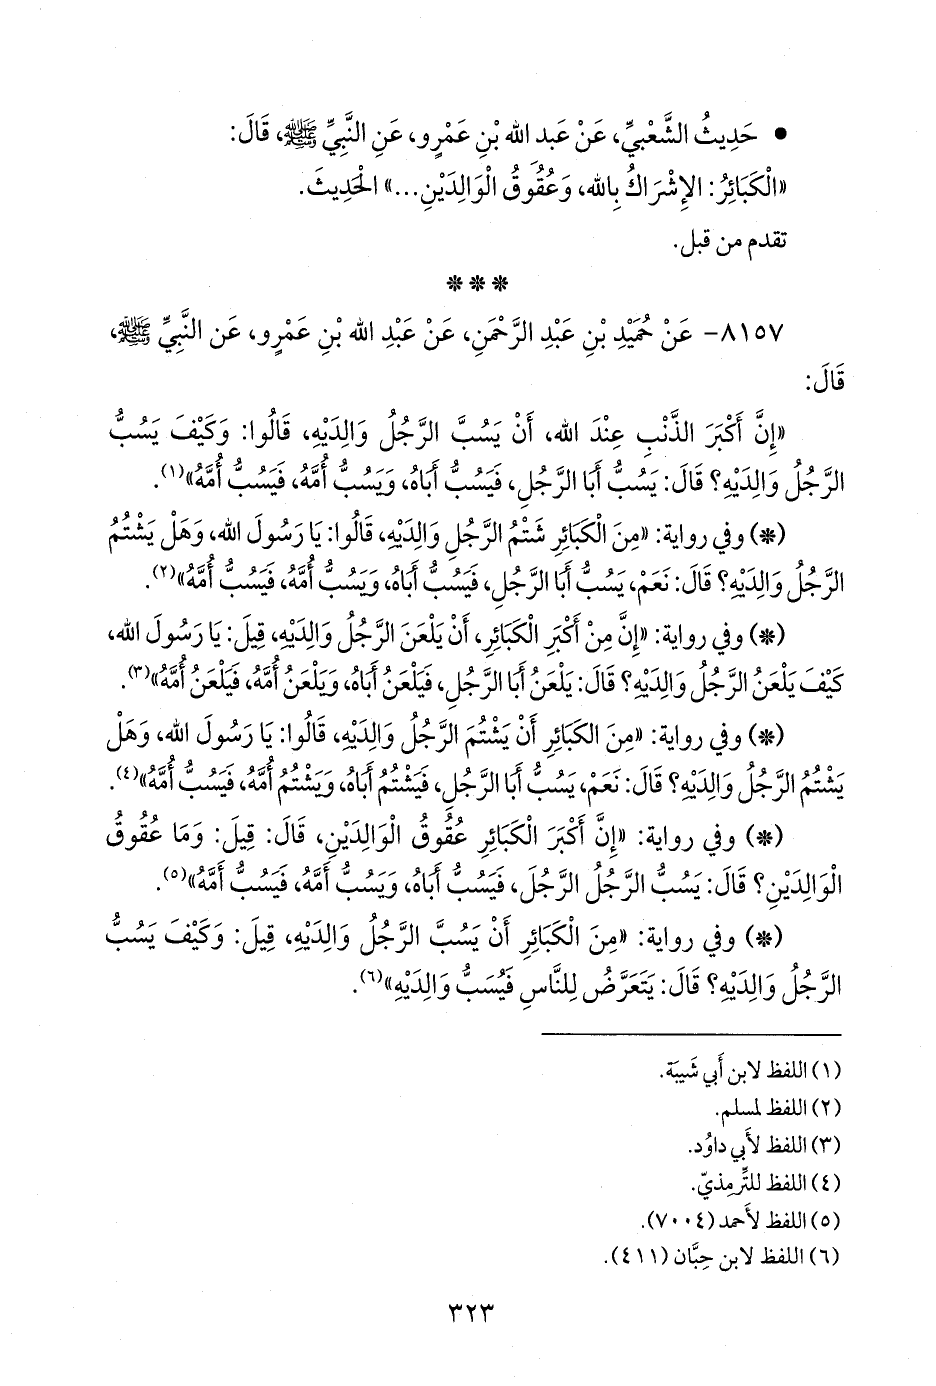 • حَدِيثُ الشَّعْبِيِّ، عَنْ عَبد الله بْنِ عَمْرٍو، عَنِ النَّبِيِّ ﷺ، قَالَ:
«الْكَبَائِرُ: الإِشْرَاكُ بِالله، وَعُقُوقُ الْوَالِدَيْنِ...» الْحَدِيثَ.
تقدم من قبل.
***
٨١٥٧- عَنْ حُمَيْدِ بْنِ عَبْدِ الرَّحْمَنِ، عَنْ عَبْدِ الله بْنِ عَمْرٍو، عَنِ النَّبِيِّ ﷺ،
قَالَ:
«إِنَّ أَكْبَرَ الذَّنْبِ عِنْدَ الله، أَنْ يَسُبَّ الرَّجُلُ وَالِدَيْهِ، قَالُوا: وَكَيْفَ يَسُبُّ
الرَّجُلُ وَالِدَيْهِ؟ قَالَ: يَسُبُّ أَبَا الرَّجُلِ، فَيَسُبُّ أَبَاهُ، وَيَسُبُّ أُمَّهُ، فَيَسُبُّ أُمَّهُ»(١).
(*) وفي رواية: «مِنَ الْكَبَائِرِ شَتْمُ الرَّجُلِ وَالِدَيْهِ، قَالُوا: يَا رَسُولَ الله، وَهَلْ يَشْتُمُ
الرَّجُلُ وَالِدَيْهِ؟ قَالَ: نَعَمْ، يَسُبُّ أَبَا الرَّجُلِ، فَيَسُبُّ أَبَاهُ، وَيَسُبُّ أُمَّهُ، فَيَسُبُّ أُمَّهُ»(٢).
(*) وفي رواية: «إِنَّ مِنْ أَكْبَرِ الْكَبَائِرِ، أَنْ يَلْعَنَ الرَّجُلُ وَالِدَيْهِ، قِيلَ: يَا رَسُولَ الله،
كَيْفَ يَلْعَنُ الرَّجُلُ وَالِدَيْهِ؟ قَالَ: يَلْعَنُ أَبَا الرَّجُلِ، فَيَلْعَنُ أَبَاهُ، وَيَلْعَنُ أُمَّهُ، فَيَلْعَنُ أُمَّهُ»(٣).
(*) وفي رواية: «مِنَ الكَبَائِرِ أَنْ يَشْتُمَ الرَّجُلُ وَالِدَيْهِ، قَالُوا: يَا رَسُولَ الله، وَهَلْ
يَشْتُمُ الرَّجُلُ وَالِدَيْهِ؟ قَالَ: نَعَمْ، يَسُبُّ أَبَا الرَّجُلِ، فَيَشْتُمُ أَبَاهُ، وَيَشْتُمُ أُمَّهُ، فَيَسُبُّ أُمَّهُ»(٤).
(*) وفي رواية: «إِنَّ أَكْبَرَ الْكَبَائِرِ عُقُوقُ الْوَالِدَيْنِ، قَالَ: قِيلَ: وَمَا عُقُوقُ
الْوَالِدَيْنِ؟ قَالَ: يَسُبُّ الرَّجُلُ الرَّجُلَ، فَيَسُبُّ أَبَاهُ، وَيَسُبُّ أُمَّهُ، فَيَسُبُّ أُمَّهُ»(٥).
(*) وفي رواية: «مِنَ الْكَبَائِرِ أَنْ يَسُبَّ الرَّجُلُ وَالِدَيْهِ، قِيلَ: وَكَيْفَ يَسُبُّ
الرَّجُلُ وَالِدَيْهِ؟ قَالَ: يَتَعَرَّضُ لِلنَّاسِ فَيُسَبُّ وَالِدَيْهِ»(٦).
(١) اللفظ لابن أَبي شَيبَة.
(٢) اللفظ لمسلم.
(٣) اللفظ لأَبي داوُد.
(٤) اللفظ للتِّرمِذيّ.
(٥) اللفظ لأَحمد (٧٠٠٤).
(٦) اللفظ لابن حِبَّان (٤١١).
٣٢٣